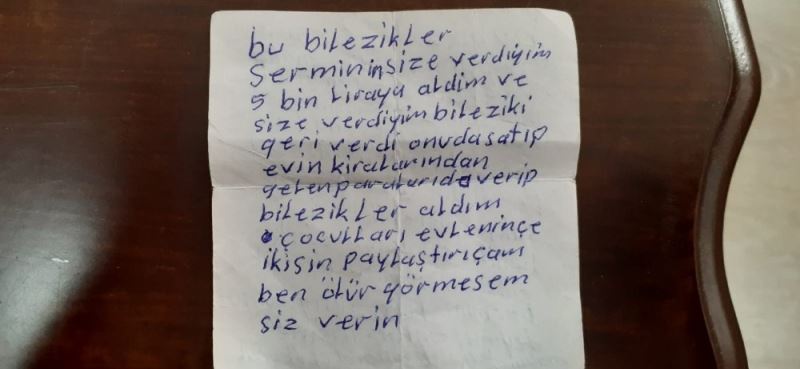 bu bilezikler
Serminin size verdiyim
5 bin liraya aldim ve
size verdiyim bileziki
geri verdi onuda satıp
evin kiralarından
gelen paralarıda verip
bilezikler aldım
çocuklları evleninçe
ikisin paylaştırıçam
ben ölür görmesem
siz verin